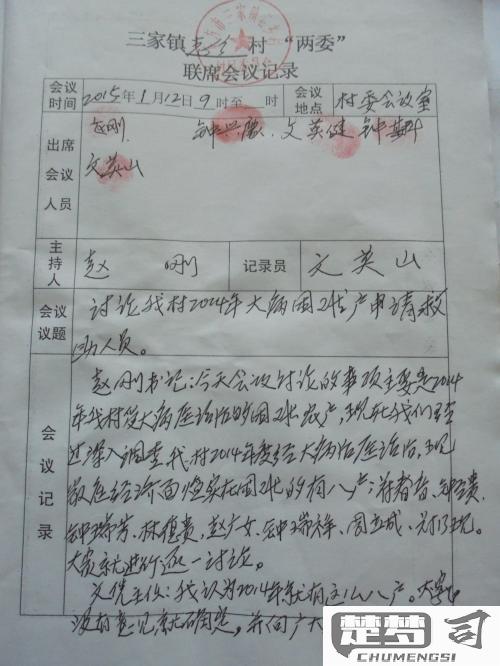 三家镇 村 “两委”
联席会议记录
会议时间 2015年1月12日9时至 时 会议地点 村委会议室
出席会议人员 赵刚 文英健
文英山
主持人 赵刚 记录员 文英山
会议议题 讨论我村2014年大病困难户申请救
助人员。
会议记录
赵刚书记:今天会议讨论的事项主要是2014
年我村 大病医治的困难农户,现在我们经
过深入调查我村2014年 大病治医治,现
家庭经济 困难的有八户:
钟瑞芳、林 贵、赵广女、钟瑞祥、周 成、
大家就进行逐一讨论。
文 主任:我认为2014年就有这么八户。大家
没有意见就确定,并向广大
楚梦司
CHUMENGSI